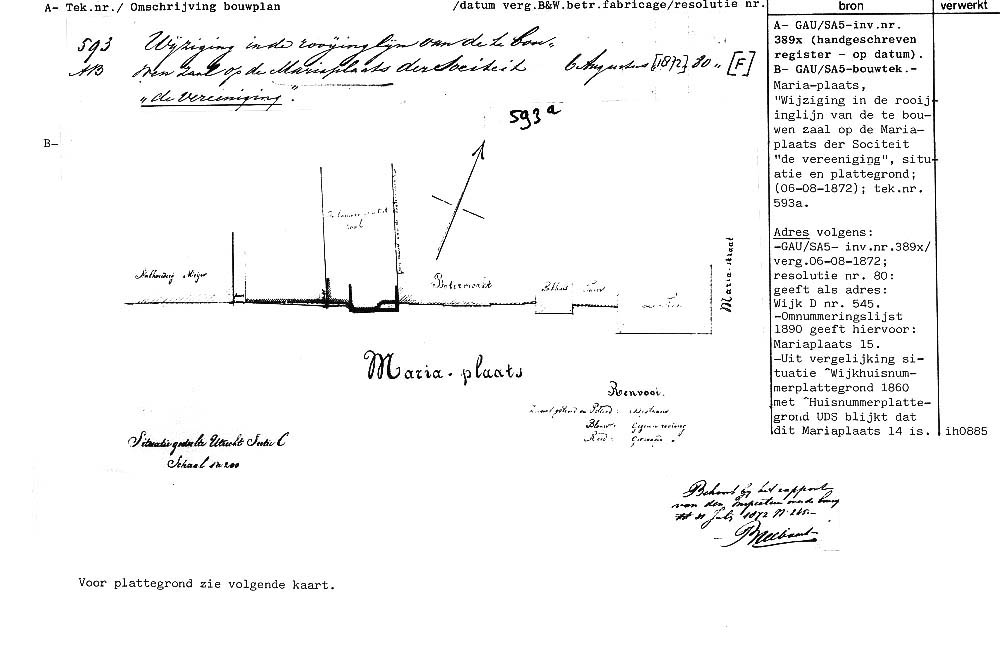 A- Tek.nr./ Omschrijving bouwplan /datum verg.B&W.betr.fabricage/resolutie nr. bron verwerkt
593 Wijziging in de rooijinglijn van de te bou-
AB wen zaal op de Mariaplaats der Sociteit 6 Augustus [1872] 80 [F]
"de vereeniging".
593a
B-
zaal
Boterwaag
Maria-straat
Maria-plaats
Renvooi.
Situatie gedeelte Utrecht Sectie C
Schaal 1 à 200
Behoort bij het rapport
van den
31 July 1872 N
Voor plattegrond zie volgende kaart.
A- GAU/SA5-inv.nr.
389x (handgeschreven
register - op datum).
B- GAU/SA5-bouwtek.-
Maria-plaats,
"Wijziging in de rooij
inglijn van de te bou-
wen zaal op de Maria-
plaats der Sociteit
"de vereeniging", situ-
atie en plattegrond;
(06-08-1872); tek.nr.
593a.
Adres volgens:
-GAU/SA5- inv.nr.389x/
verg.06-08-1872;
resolutie nr. 80:
geeft als adres:
Wijk D nr. 545.
-Omnummeringslijst
1890 geeft hiervoor:
Mariaplaats 15.
-Uit vergelijking si-
tuatie ^Wijkhuisnum-
merplattegrond 1860
met ^Huisnummerplatte-
grond UDS blijkt dat
dit Mariaplaats 14 is. ih0885